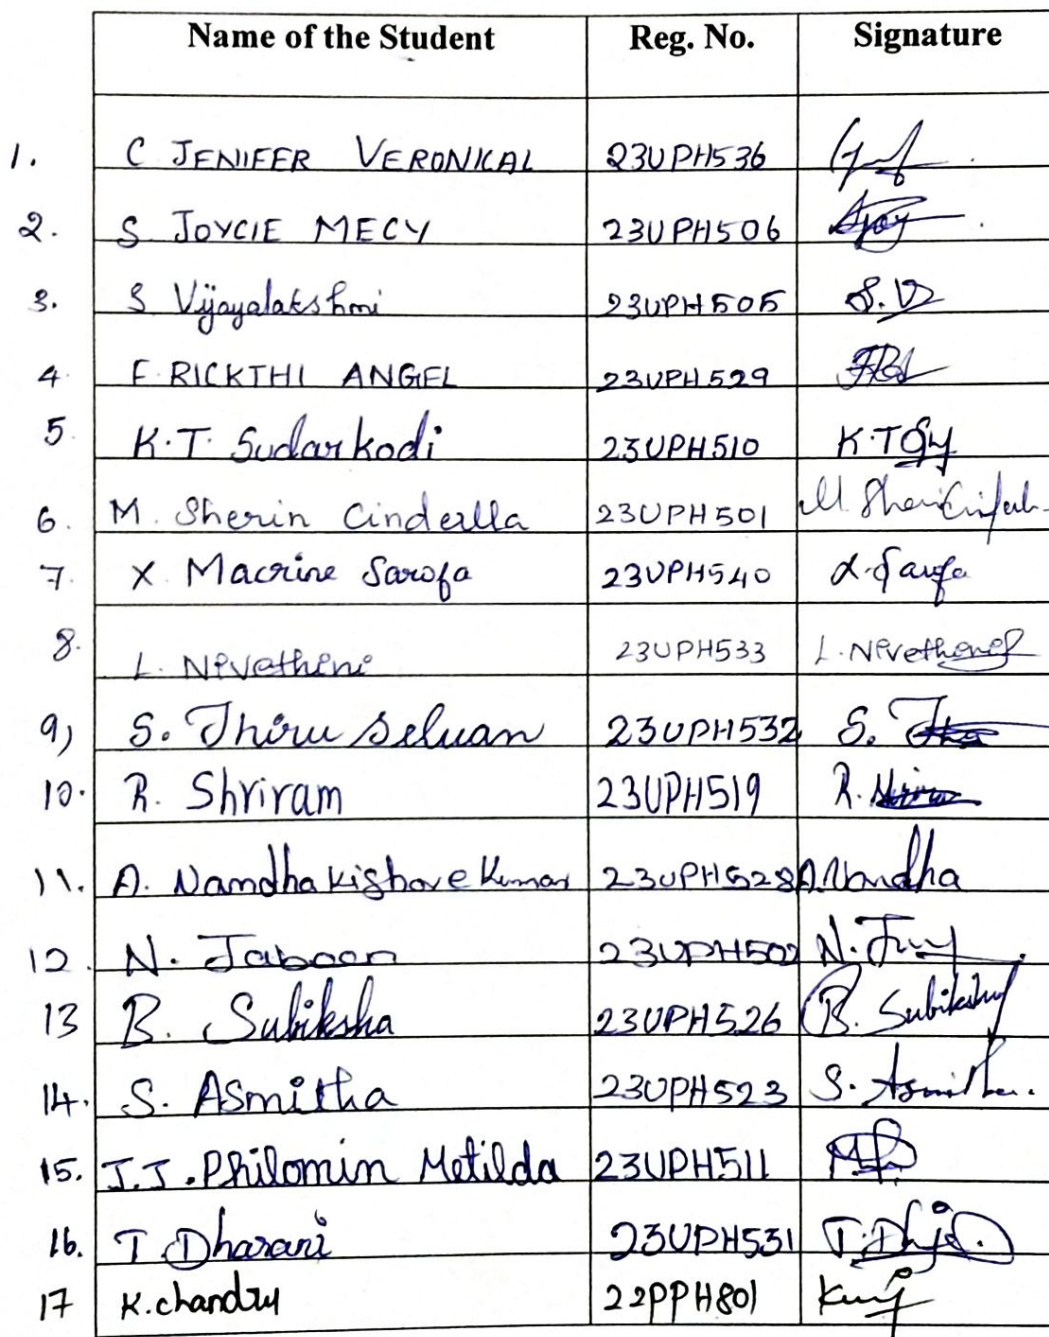 Name of the Student Reg. No. Signature
1. C JENIFER VERONICAL 23UPH536
2. S JOYCIE MECY 23UPH506
3. S Vijayalakshmi 23UPH505 S.V
4. F RICKTHI ANGEL 23UPH529
5. K.T. Sudarkodi 23UPH510 K.T
6. M. Sherin Cinderlla 23UPH501 M.
7. X Macrine Sarofa 23UPH540
8. L. Nivethini 23UPH533 L. Nivethini
9) S. Thiru Selvan 23UPH532 S.
10. R. Shriram 23UPH519 R.
11. A. Nandha kishore Kumar 23UPH528 A. Nandha
12. N. 23UPH502 N.
13 B. Subiksha 23UPH526 B. Subiksha
14. S. Asmitha 23UPH523 S. Asmitha.
15. J.J. Philomin Metilda 23UPH511
16. T Dharani 23UPH531 T.
17 K. chandru 22PPH801